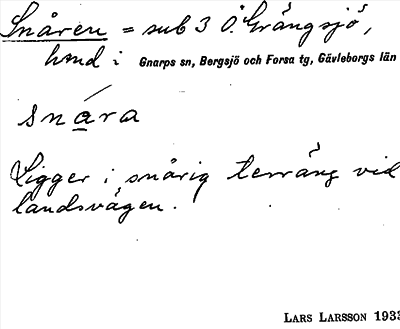 Snåren = sub 3 Ö. Grängsjö,
hmd i Gnarps sn, Bergsjö och Forsa tg, Gävleborgs län
snára
Ligger i snårig terräng vid
landsvägen.
LARS LARSSON 1933